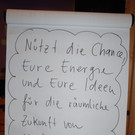 Nützt die Chance
Eure Energie
und Eure Ideen
für die räumliche
Zukunft von